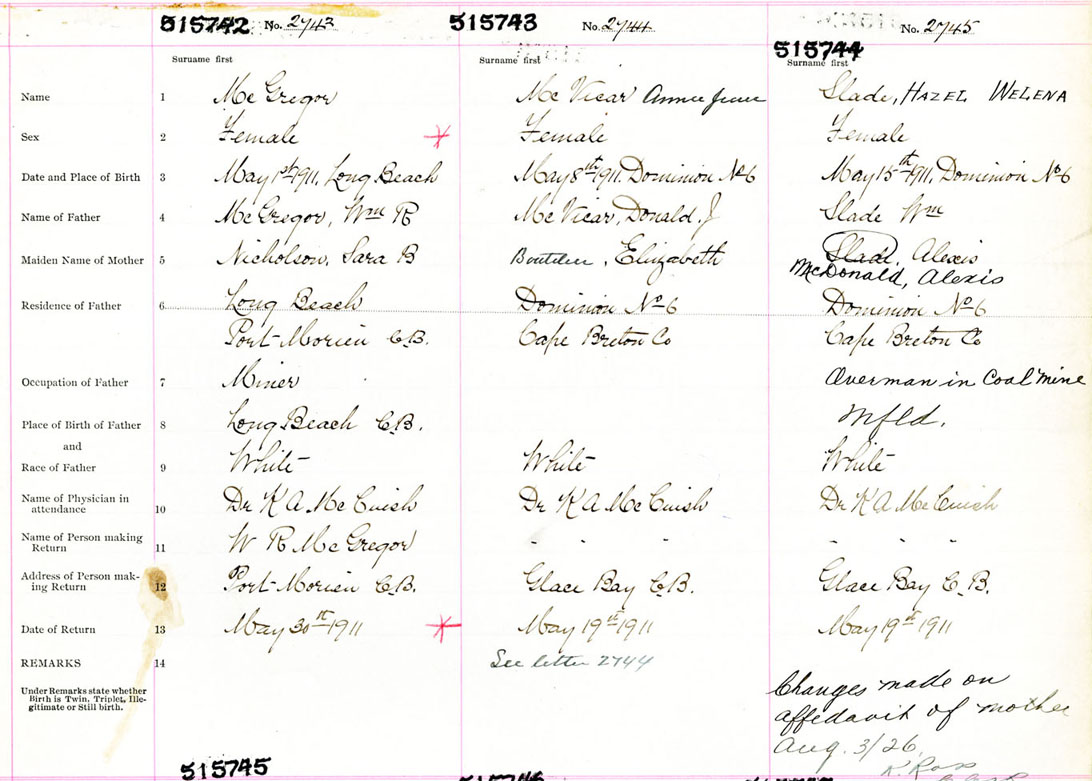 515742 No. 2743 515743 No. 2744 No. 2745
515744
Surname first Surname first Surname first
Name 1 McGregor McVicar Annie June Slade, HAZEL WELENA
Sex 2 Female Female Female
Date and Place of Birth 3 May 1st 1911, Long Beach May 8th 1911, Dominion No 6 May 15th 1911, Dominion No 6
Name of Father 4 McGregor, Wm R McVicar, Donald. J Slade Wm
Maiden Name of Mother 5 Nicholson, Sara B , Elizabeth Slade, Alexis
McDonald, Alexis
Residence of Father 6 Long Beach Dominion No 6 Dominion No 6
Port Morien C.B. Cape Breton Co Cape Breton Co
Occupation of Father 7 Miner Overman in Coal mine
Place of Birth of Father 8 Long Beach C.B. Nfld.
and
Race of Father 9 White White White
Name of Physician in
attendance 10 Dr K A McCuish Dr K A McCuish Dr K A McCuish
Name of Person making
Return 11 W R McGregor " " " " " "
Address of Person mak-
ing Return 12 Port Morien C.B. Glace Bay C.B. Glace Bay C.B.
Date of Return 13 May 30th 1911 May 19th 1911 May 19th 1911
REMARKS 14 See letter 2744
Under Remarks state whether
Birth is Twin, Triplet, Ille-
gitimate or Still birth.
Changes made on
affedavit of mother
Aug. 3/26,
K Ross
515745